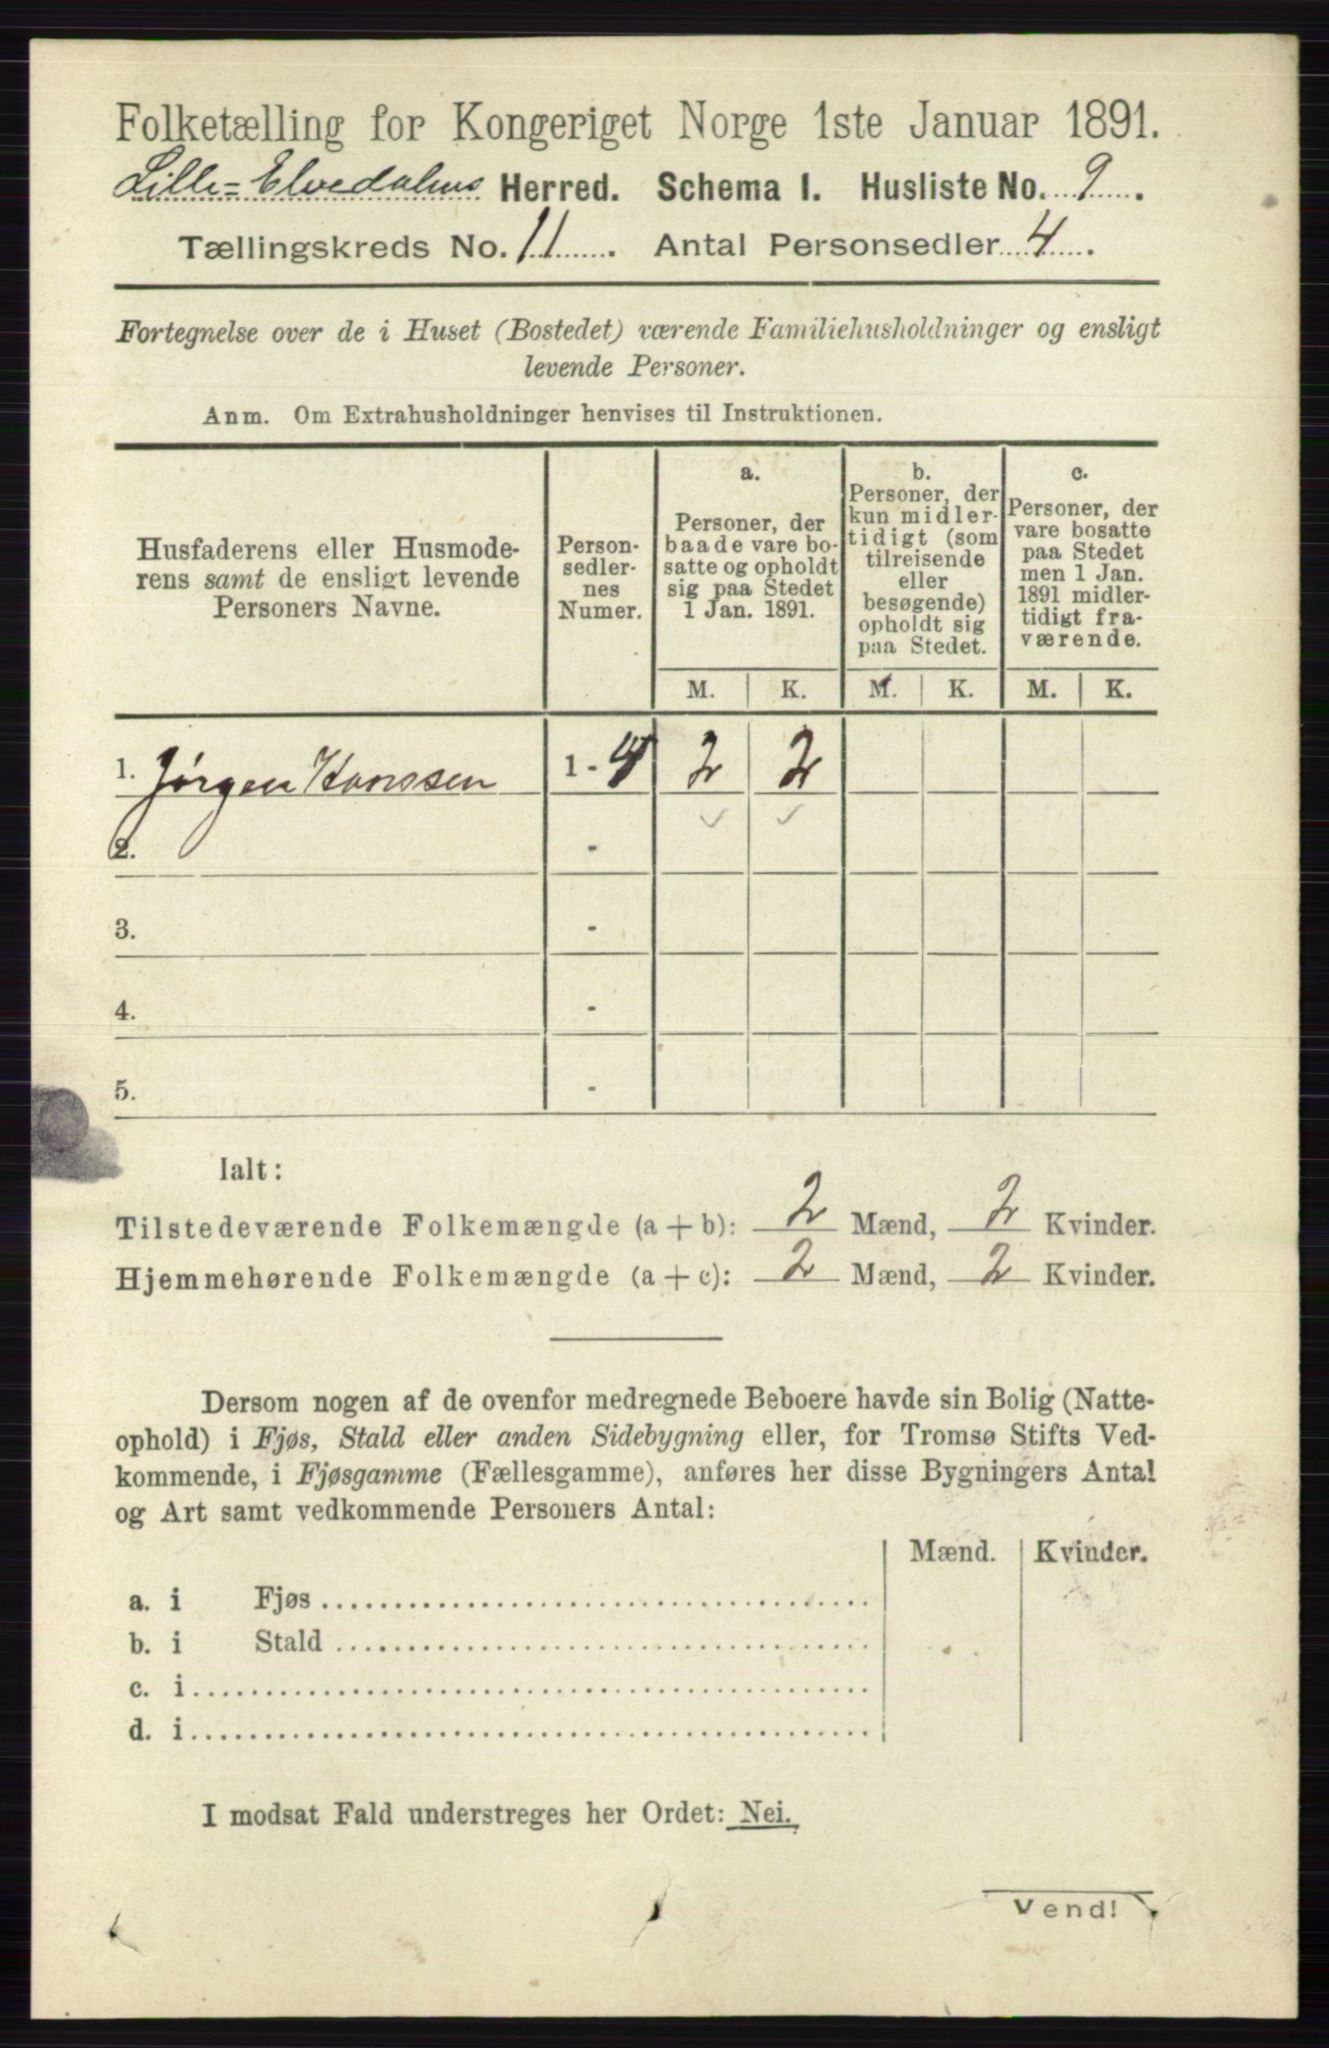 Folketælling for Kongeriget Norge 1ste Januar 1891.
Lille=Elvedalens Herred. Schema I. Husliste No. 9.
Tællingskreds No. 11. Antal Personsedler 4.
Fortegnelse over de i Huset (Bostedet) værende Familiehusholdninger og ensligt
levende Personer.
Anm. Om Extrahusholdninger henvises til Instruktionen.
Husfaderens eller Husmode-
rens samt de ensligt levende
Personers Navne.
Person-
sedler-
nes
Numer.
a.
Personer, der
baade vare bo-
satte og opholdt
sig paa Stedet
1 Jan. 1891.
b.
Personer, der
kun midler-
tidigt (som
tilreisende
eller
besøgende)
opholdt sig
paa Stedet.
c.
Personer, der
vare bosatte
paa Stedet
men 1 Jan.
1891 midler-
tidigt fra-
værende.
M. K. M. K. M. K.
1. Jørgen Hanssen 1 - 4 2 2
2. -
3. -
4. -
5. -
Ialt:
Tilstedeværende Folkemængde (a + b): 2 Mænd, 2 Kvinder.
Hjemmehørende Folkemængde (a + c): 2 Mænd, 2 Kvinder.
Dersom nogen af de ovenfor medregnede Beboere havde sin Bolig (Natte-
ophold) i Fjøs, Stald eller anden Sidebygning eller, for Tromsø Stifts Ved-
kommende, i Fjøsgamme (Fællesgamme), anføres her disse Bygningers Antal
og Art samt vedkommende Personers Antal:
Mænd. Kvinder.
a. i Fjøs
b. i Stald
c. i
d. i
I modsat Fald understreges her Ordet: Nei.
Vend!